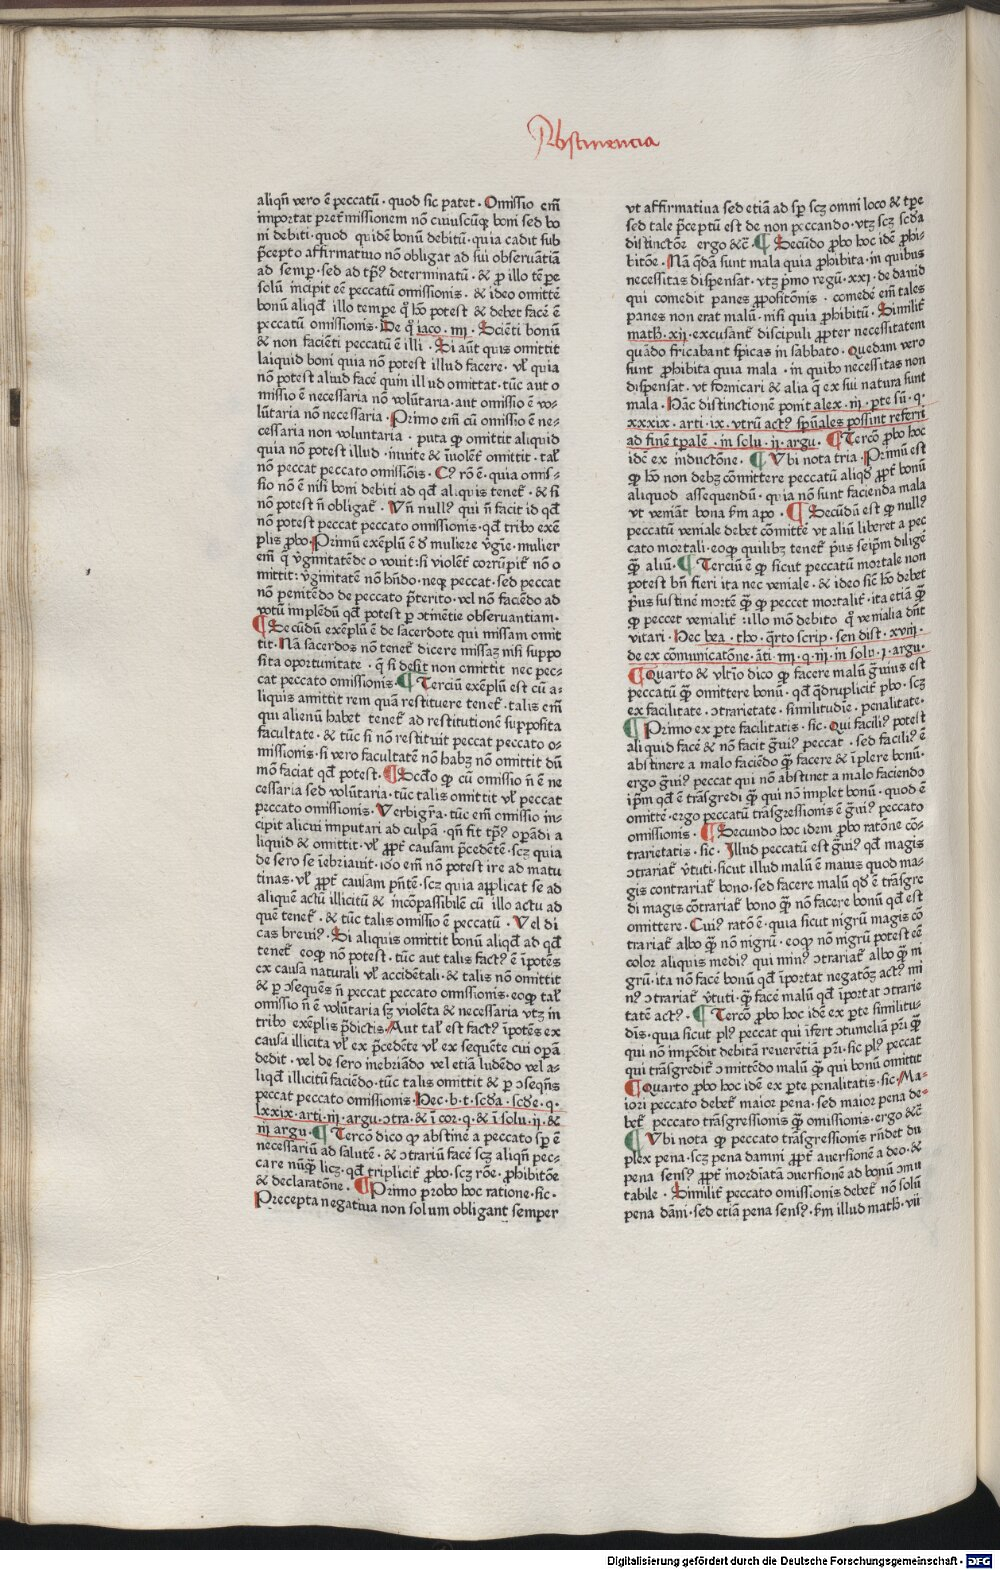 Abstinencia
aliqñ vero ē peccatū · quod sic patet · Omissio em̄
importat pret̄missionem nō cuiuscūqꝫ boni sed bo
ni debiti · quod quidē bonū debitū · quia cadit sub
p̄cepto affirmatiuo nō obligat ad sui obseruātiā
ad semꝑ · sed ad tp̄ꝰ determinatū · & ꝑ illo tēpe
solū incipit eē peccatū omissionis · & ideo omittē
bonū aliqd̄ illo tempe qͦ hō potest & debet facē ē
peccatū omissionis · De qͦ iaco · iiij · Sciēti bonū
& non faciēti peccatū ē illi · Si aūt quis omittit
laiquid boni quia nō potest illud facere · vl̄ quia
nō potest aliud facē quin illud omittat · tūc aut o
missio ē necessaria nō volūtaria · aut omissio ē vo-
lūtaria nō necessaria · Primo em̄ cū omissio ē ne-
cessaria non voluntaria · puta ꝙ omittit aliquid
quia nō potest illud · inuite & īuolēt̄ omittit · tal̄
nō peccat peccato omissiōis · Cꝰ rō ē · quia omis-
sio nō ē nisi boni debiti ad qd̄ aliquis tenet̄ · & si
nō potest n̄ obligat̄ · Vn̄ nullꝰ qui n̄ facit id qd̄
nō potest peccat peccato omissionis · qd̄ tribꝰ exē
plis ꝓbo · Primū exēplū ē d̄ muliere v̄gīe · mulier
em̄ q̄ v̄ginitatē deo vouit : si violēt̄ corrūpit̄ nō o
mittit : v̄ginitatē nō hn̄do · neqꝫ peccat · sed peccat
nō penitēdo de peccato p̄terito · vel nō faciēdo ad
votū implēdū qd̄ potest ꝑ ↄtinētie obseruantiam ·
¶ Secūdū exēplū ē de sacerdote qui missam omit
tit · Nā sacerdos nō tenet̄ dicere missaꝫ nisi suppo
sita oportunitate · q̄ si desit non omittit nec pec-
cat peccato omissionis · ¶ Terciū exēplū est cū a-
liquis amittit rem quā restituere tenet̄ · talis em̄
qui alienū habet tenet̄ ad restitutionē supposita
facultate · & tūc si nō restituit peccat peccato o-
missionis · si vero facultatē nō habꝫ nō omittit dū
mō faciat qd̄ potest · ¶ Scd̄o ꝙ cū omissio n̄ ē ne
cessaria sed volūtaria · tūc talis omittit vl̄ peccat
peccato omissionis · Verbigr̄a · tūc em̄ omissio in-
cipit alicui imputari ad culpā · qn̄ fit tp̄ꝰ operādi a
liquid & omittit · vl̄ ꝓpt̄ causam p̄cedētē · scꝫ quia
de sero se īebriauit · ioo em̄ nō potest ire ad matu
tinas · vl̄ ꝓpt̄ causam pn̄tē · scꝫ quia applicat se ad
aliquē actū illicitū & incōpassibilē cū illo actu ad
quē tenet̄ · & tūc talis omissio ē peccatū · Vel di
cas breuiꝰ · Si aliquis omittit bonū aliqd̄ ad qd̄
tenet̄ eoqꝫ nō potest · tūc aut talis factꝰ ē īpotēs
ex causa naturali vl̄ accidētali · & talis nō omittit
& ꝑ ↄsequēs n̄ peccat peccato omissionis · eoqꝫ tal̄
omissio n̄ ē volūtaria sꝫ violēta & necessaria vtꝫ in
tribꝰ exēplis p̄dictis · Aut tal̄ est factꝰ īpotēs ex
causa illicita vl̄ ex p̄cedēte vl̄ ex sequēte cui operā
dedit · vel de sero inebriādo vel etiā ludēdo vel a-
liqd̄ illicitū faciēdo · tūc talis omittit & ꝑ ↄseqn̄s
peccat peccato omissionis · Hec · b · t · scd̄a · scd̄e · q ·
lxxix · arti · iij · argu · ↄtra · & ī cor · q · & ī solu · ij · &
iij argu · ¶ Tercō dico ꝙ abstinē a peccato sꝑ ē
necessariū ad salutē · & ↄtrariū facē scꝫ aliqn̄ pec-
care nūqꝫ̄ licꝫ · qd̄ triplicit̄ ꝓbo · scꝫ rōe · ꝓhibitōe
& declaratōne · ¶ Primo probo hoc ratione · sic ·
Precepta negatiua non solum obligant semper
vt affirmatiua sed etiā ad sꝑ scꝫ omni loco & tꝑe
sed tale p̄ceptū est de non peccando · vtꝫ scꝫ scd̄a
distinctōe ergo &c̄ · ¶ Secūdo ꝓbo hoc idē ꝓhi-
bitōe · Nā qd̄ā sunt mala quia ꝓhibita · in quibus
necessitas dispensat · vtꝫ pͥmo regū · xxj · de dauid
qui comedit panes ꝓpositōnis · comedē em̄ tales
panes non erat malū · nisi quia ꝓhibitū · Similit̄
math · xij · excusant̄ discipuli ꝓpter necessitatem
quādo fricabant spicas in sabbato · Quedam vero
sunt ꝓhibita quia mala · in quibꝰ necessitas non
dispensat · vt fornicari & alia q̄ ex sui natura sunt
mala · Hāc distinctionē ponit alex · iij · ꝑte sū · q ·
xxxix · arti · ix · vtrū actꝰ spūales possint referri
ad finē tꝑalē · in solu · ij · argu · ¶ Tercō ꝓbo hoc
idē ex inductōne · ¶ Vbi nota tria · Primū est
ꝙ hō non debꝫ cōmittere peccatū aliqd̄ ꝓpt̄ bonū
aliquod assequendū · quia nō sunt facienda mala
vt veniāt bona ẜm apo · ¶ Secūdū est ꝙ nullꝰ
peccatū veniale debet cōmittē vt aliū liberet a pec
cato mortali · eoqꝫ quilibꝫ tenet̄ pͥus seip̄m diligē
qꝫ̄ aliū · ¶ Terciū ē ꝙ sicut peccatū mortale non
potest bn̄ fieri ita nec veniale · & ideo sic̄ hō debet
pͥus sustinē mortē qꝫ̄ ꝙ peccet mortalit̄ · ita etiā qꝫ̄
ꝙ peccet venialit̄ : illo mō debito qͦ venialia dn̄t
vitari · Hec bea · tho · q̄rto scrip · sen dist · xviij ·
de ex cōmunicatōne · āti · iiij · q · iij · in solu · j · argu ·
¶ Quarto & vltīo dico ꝙ facere malū gͣuius est
peccatū qꝫ̄ omittere bonū · qd̄ qͣdruplicit̄ ꝓbo · scꝫ
ex facilitate · ↄtrarietate · similitudīe · penalitate ·
¶ Primo ex ꝑte facilitatis · sic · Qui faciliꝰ potest
ali quid facē & nō facit gͣuiꝰ peccat · sed faciliꝰ ē
abstinere a malo faciēdo qꝫ̄ facere & īplere bonū ·
ergo gͣuiꝰ peccat qui nō abstinet a malo faciendo
ip̄m qd̄ ē trāsgredi qꝫ̄ qui nō implet bonū · quod ē
omittē · ergo peccatū trāsgressionis ē gͣuiꝰ peccato
omissionis · ¶ Secundo hoc idem ꝓbo ratōne cō-
trarietatis · sic · Illud peccatū est gͣuiꝰ qd̄ magis
ↄtrariat̄ v̄tuti · sicut illud malū ē maius quod ma-
gis contrariat̄ bono · sed facere malū qd̄ ē trāsgre
di magis cōtrariat̄ bono qꝫ̄ nō facere bonū qd̄ est
omittere · Cuiꝰ ratō ē · quia sicut nigrū magis cō
trariat̄ albo qꝫ̄ nō nigrū · eoqꝫ nō nigrū potest eē
color aliquis mediꝰ qui minꝰ ↄtrariat̄ albo qꝫ̄ ni
grū · ita nō facē bonū qd̄ īportat negatōꝫ actꝰ mi
nꝰ ↄtrariat̄ v̄tuti · qꝫ̄ facē malū qd̄ īportat ↄtrarie
tatē actꝰ · ¶ Tercō ꝓbo hoc idē ex ꝑte similitu-
dīs · quia sicut plꝰ peccat qui īfert ↄtumeliā pr̄i qꝫ̄
qui nō impēdit debitā reuerētiā pr̄i · sic plꝰ peccat
qui trāsgredit̄ ↄmittēdo malū qꝫ̄ qui bonū omittit
¶ Quarto ꝓbo hoc idē ex ꝑte penalitatis · sic · Ma-
iori peccato debet̄ maior pena · sed maior pena de-
bet̄ peccato trāsgressionis qꝫ̄ omissionis · ergo &c̄
¶ Vbi nota ꝙ peccato trāsgressionis rn̄det du
plex pena · scꝫ pena damni ꝓpt̄ auersionē a deo · &
pena sensꝰ ꝓpt̄ mordīatā ↄuersionē ad bonū ↄmu
tabile · Similit̄ peccato omissionis debet̄ nō solū
pena dāni · sed etiā pena sensꝰ · ẜm illud math · vij
Digitalisierung gefördert durch die Deutsche Forschungsgemeinschaft - DFG